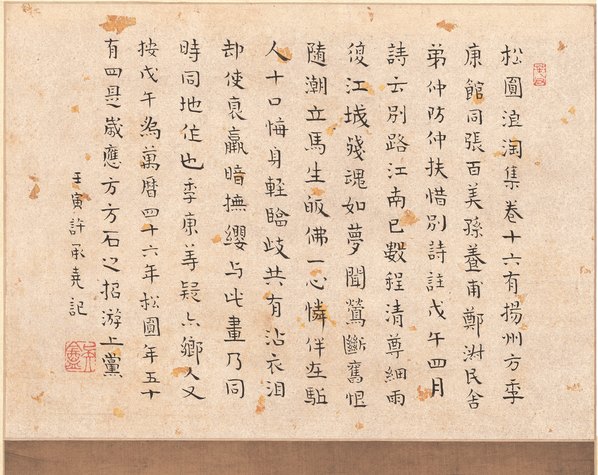 松圓浪淘集卷十六有揚州方季
康館同張百美孫養甫鄭澍民舍
弟仲防仲扶惜別詩註戊午四月
詩云別路江南已數程清尊細雨
復江城殘魂如夢聞鶯斷舊恨
隨潮立馬生皈佛一心憐伴在駈
人十口悔身輕臨歧共有沾衣泪
却使衰羸暗撫纓与此畫乃同
時同地作也季康等疑亦鄉人又
按戊午為萬曆四十六年松圓年五十
有四是歲應方方石之招游上黨
壬寅許承堯記